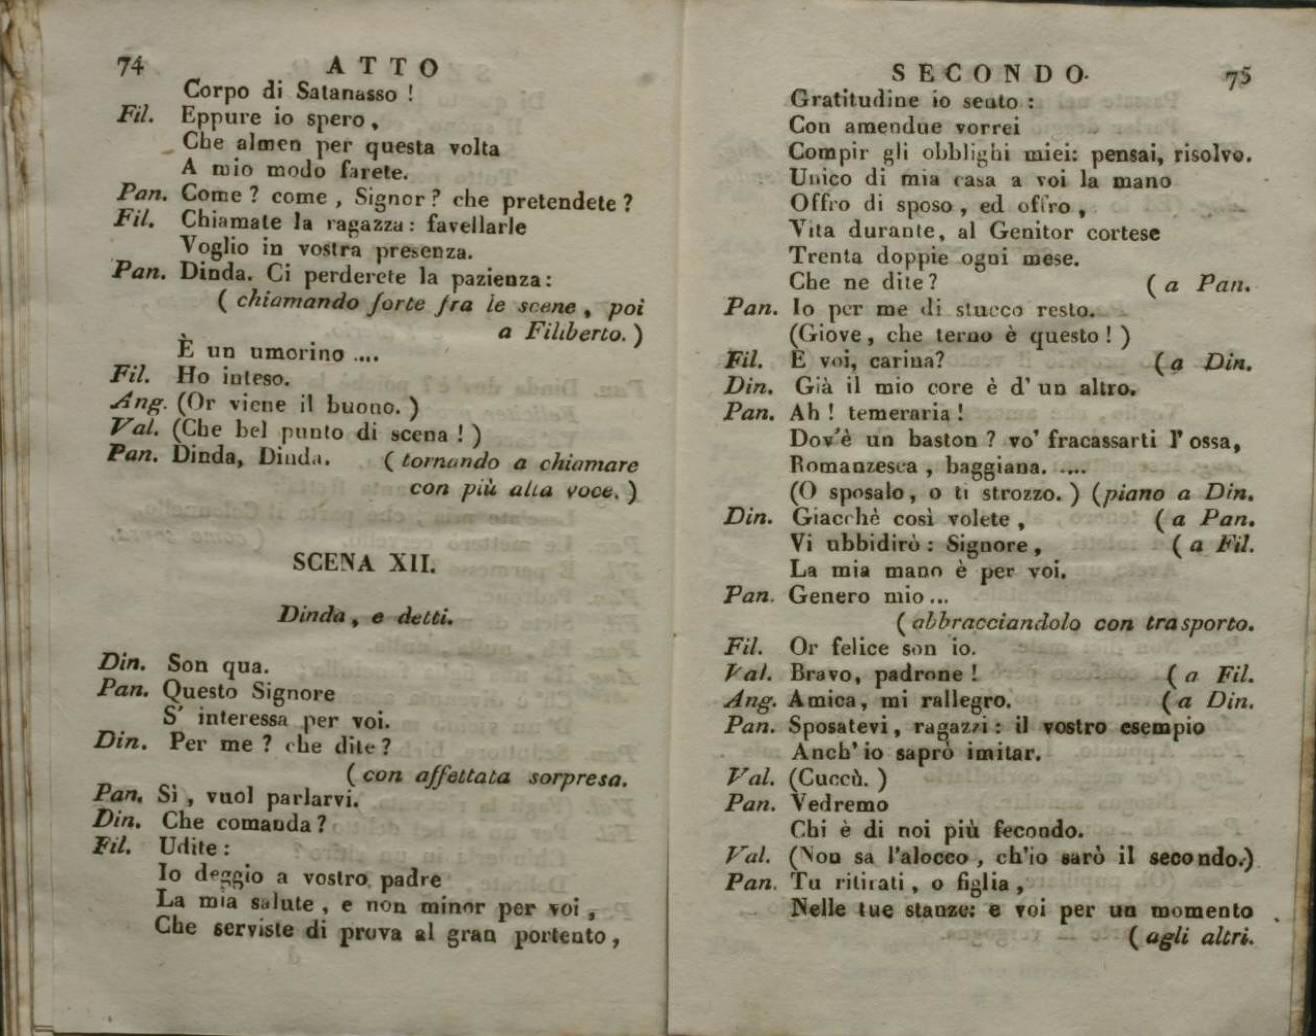 74 ATTO
Corpo di Satanasso !
Fil. Eppure io spero,
Che almen per questa volta
A mio modo farete.
Pan. Come ? come , Signor ? che pretendete ?
Fil. Chiamate la ragazza : favellarle
Voglio in vostra presenza.
Pan. Dinda. Ci perderete la pazienza :
( chiamando forte fra le scene , poi
a Filiberto. )
È un umorino ....
Fil. Ho inteso.
Ang. (Or viene il buono. )
Val. (Che bel punto di scena ! )
Pan. Dinda, Dinda. ( tornando a chiamare
con più alta voce. )
SCENA XII.
Dinda , e detti.
Din. Son qua.
Pan. Questo Signore
S' interessa per voi.
Din. Per me ? che dite ?
( con affettata sorpresa.
Pan. Sì , vuol parlarvi.
Din. Che comanda ?
Fil. Udite :
Io deggio a vostro padre
La mia salute , e non minor per voi ,
Che serviste di prova al gran portento ,
SECONDO. 75
Gratitudine io sento :
Con amendue vorrei
Compir gli obblighi miei: pensai, risolvo.
Unico di mia casa a voi la mano
Offro di sposo , ed offro ,
Vita durante, al Genitor cortese
Trenta doppie ogni mese.
Che ne dite ? ( a Pan.
Pan. Io per me di stucco resto.
(Giove , che terno è questo ! )
Fil. E voi, carina? ( a Din.
Din. Già il mio core è d' un altro.
Pan. Ah ! temeraria !
Dov'è un baston ? vo' fracassarti l' ossa,
Romanzesca , baggiana. ....
(O sposalo, o ti strozzo. ) (piano a Din.
Din. Giacchè così volete , ( a Pan.
Vi ubbidirò : Signore , ( a Fil.
La mia mano è per voi.
Pan. Genero mio ...
( abbracciandolo con trasporto.
Fil. Or felice son io.
Val. Bravo, padrone ! ( a Fil.
Ang. Amica, mi rallegro. ( a Din.
Pan. Sposatevi , ragazzi : il vostro esempio
Anch' io saprò imitar.
Val. (Cuccù. )
Pan. Vedremo
Chi è di noi più fecondo.
Val. (Non sa l'alocco , ch'io sarò il secondo.)
Pan. Tu ritirati , o figlia ,
Nelle tue stanze: e voi per un momento
( agli altri.